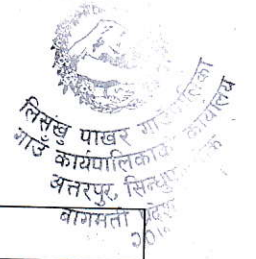 लिसंखु पाखर गाउँपालिका
गाउँ कार्यपालिकाको कार्यालय
अत्तरपुर, सिन्धुपाल्चोक
बागमती प्रदेश